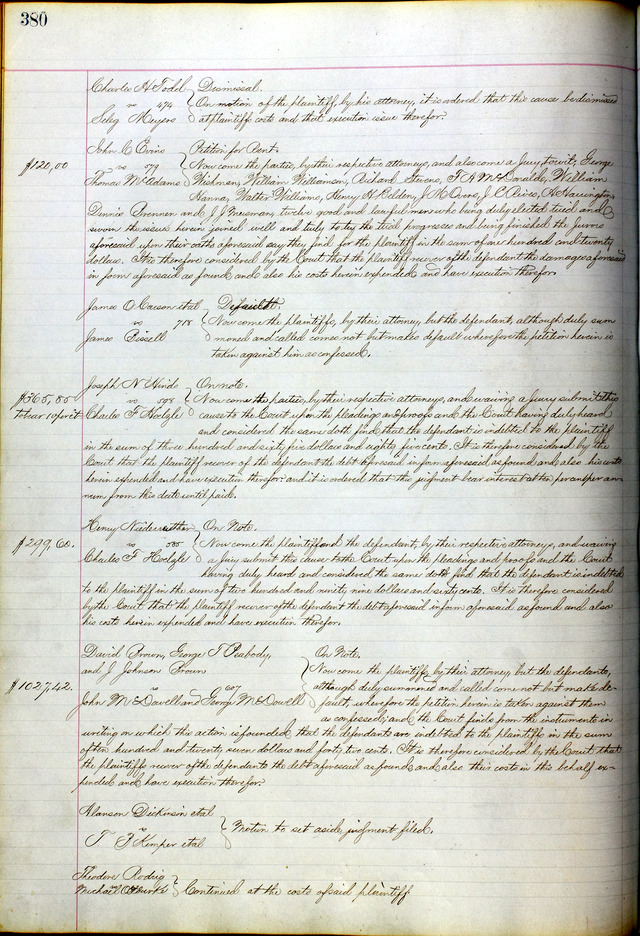 380
Charles H Todd } Dismissal.
vs 474 On motion of the plaintiff, by his attorney, it is ordered that this cause be dismissed
Selig Meyers at plaintiffs costs and that execution issue therefor.
John C Evins } Petition for Rent.
$120,00 vs 579 Now come the parties, by their respective attorneys, and also come a Jury, towit, George
Thomas McAdams Wishmen, William Williamson, Richard Stevens, F A McDonald, William
Hanna, Walter Williams, Henry H Belden, J M Overs, J C Rives, H Harrington,
Dennis Brennen and J J Neisman, twelve good and lawful men who being duly elected tried and
sworn the issues herein joined well and truly to try the trial progresses and being finished the jurors
aforesaid upon their oaths aforesaid say they find for the plaintiff in the sum of one hundred and twenty
dollars. It is therefore considered by the Court that the plaintiff recover of the defendant the damages aforesaid
in form aforesaid as found, and also his costs herein expended and have execution therefor.
James O Carson etal } Default.
vs 718 Now come the plaintiffs, by their attorney, but the defendant, although duly sum
James Bissell moned and called comes not but makes default wherefore the petition herein is
taken against him as confessed.
Joseph N Hinds } On note.
$365,85 vs 598 Now come the parties, by their respective attorneys, and waiving a Jury submit this
to bear 10 pr ct Charles F Hoelzle cause to the Court upon the pleadings and proofs and the Court having duly heard
and considered the same doth find that the defendant is indebted to the plaintiff
in the sum of three hundred and sixty five dollars and eighty five cents. It is therefore considered by the
Court that the plaintiff recover of the defendant the debt aforesaid in form aforesaid as found and also his costs
herein expended and have execution therefor: and it is ordered that the judgment bear interest at ten per cent per an-
num from this date until paid.
Henry Niederwither } On Note.
$299,60. vs 585 Now come the plaintiff and the defendant, by their respective attorneys, and waiving
Charles F Hoelzle a Jury submit this cause to the Court upon the pleadings and proofs and the Court
having duly heard and considered the same doth find that the defendant is indebted
to the plaintiff in the sum of two hundred and ninety nine dollars and sixty cents. It is therefore considered
by the Court that the plaintiff recover of the defendant the debt aforesaid in form aforesaid as found and also
his costs herein expended and have execution therefor.
David Brown, George T Peabody, } On Note.
and J Johnson Brown Now come the plaintiffs, by their attorney, but the defendants,
$1027,42. vs 607 although duly summoned and called come not but make de-
John McDavell and George McDowell fault, wherefore the petition herein is taken against them
as confessed; and the Court finds from the instruments in
writing on which this action is founded that the defendants are indebted to the plaintiffs in the sum
of ten hundred and twenty seven dollars and forty two cents. It is therefore considered by the Court that
the plaintiffs recover of the defendants the debt aforesaid as found, and also their cost in this behalf ex-
pended and have execution therefor.
Alanson Dickinson etal
vs } Motion to set aside judgment filed.
T F Kemper etal
Theodore Rodrig
Michael ORourke } Continued at the costs of said plaintiff